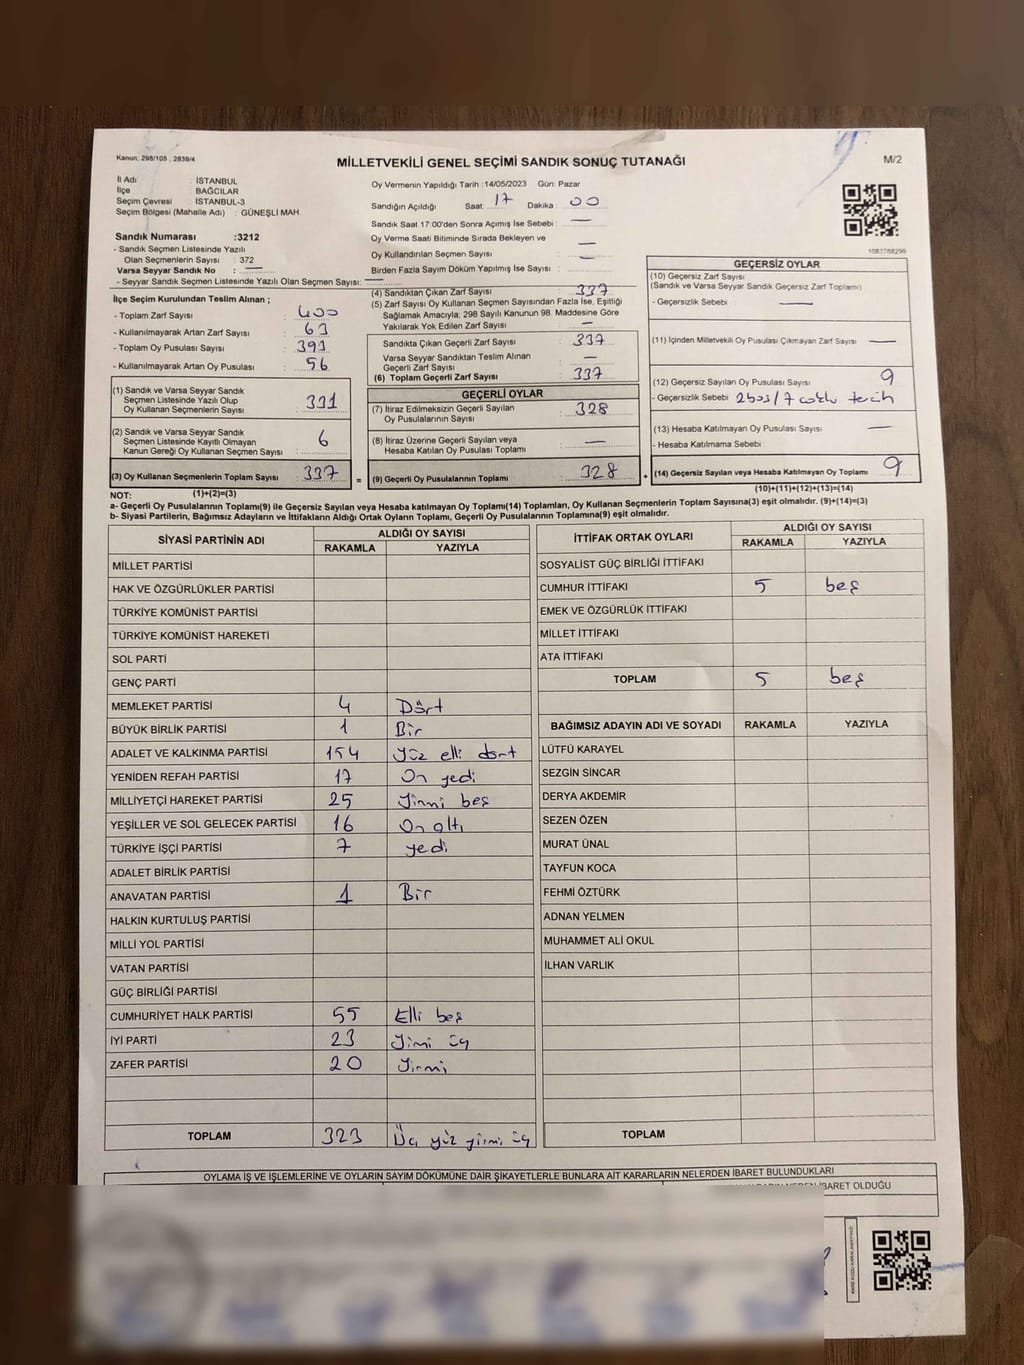 Kanun: 298/105 , 2839/4
MİLLETVEKİLİ GENEL SEÇİMİ SANDIK SONUÇ TUTANAĞI
M/2
İl Adı : İSTANBUL
İlçe : BAĞCILAR
Seçim Çevresi : İSTANBUL-3
Seçim Bölgesi (Mahalle Adı) : GÜNEŞLİ MAH.
Sandık Numarası :3212
- Sandık Seçmen Listesinde Yazılı
Olan Seçmenlerin Sayısı : 372
Varsa Seyyar Sandık No : —
- Seyyar Sandık Seçmen Listesinde Yazılı Olan Seçmen Sayısı: —
Oy Vermenin Yapıldığı Tarih :14/05/2023 Gün: Pazar
Sandığın Açıldığı Saat: 17 Dakika : 00
Sandık Saat 17:00'den Sonra Açımış İse Sebebi : —
Oy Verme Saati Bitiminde Sırada Bekleyen ve
Oy Kullandırılan Seçmen Sayısı : —
Birden Fazla Sayım Döküm Yapılmış İse Sayısı :
1087788299
İlçe Seçim Kurulundan Teslim Alınan ;
- Toplam Zarf Sayısı : 400
- Kullanılmayarak Artan Zarf Sayısı : 63
- Toplam Oy Pusulası Sayısı : 393
- Kullanılmayarak Artan Oy Pusulası : 56
(1) Sandık ve Varsa Seyyar Sandık
Seçmen Listesinde Yazılı Olup
Oy Kullanan Seçmenlerin Sayısı : 331
(2) Sandık ve Varsa Seyyar Sandık
Seçmen Listesinde Kayıtlı Olmayan
Kanun Gereği Oy Kullanan Seçmen Sayısı : 6
(3) Oy Kullanan Seçmenlerin Toplam Sayısı : 337
(4) Sandıktan Çıkan Zarf Sayısı : 337
(5) Zarf Sayısı Oy Kullanan Seçmen Sayısından Fazla İse, Eşitliği
Sağlamak Amacıyla; 298 Sayılı Kanunun 98. Maddesine Göre
Yakılarak Yok Edilen Zarf Sayısı : —
Sandıkta Çıkan Geçerli Zarf Sayısı : 337
Varsa Seyyar Sandıktan Teslim Alınan
Geçerli Zarf Sayısı : —
(6) Toplam Geçerli Zarf Sayısı : 337
GEÇERLİ OYLAR
(7) İtiraz Edilmeksizin Geçerli Sayılan
Oy Pusulalarının Sayısı : 328
(8) İtiraz Üzerine Geçerli Sayılan veya
Hesaba Katılan Oy Pusulası Toplamı : —
= (9) Geçerli Oy Pusulalarının Toplamı : 328
GEÇERSİZ OYLAR
(10) Geçersiz Zarf Sayısı :
(Sandık ve Varsa Seyyar Sandık Geçersiz Zarf Toplamı)
- Geçersizlik Sebebi : —
(11) İçinden Milletvekili Oy Pusulası Çıkmayan Zarf Sayısı : —
(12) Geçersiz Sayılan Oy Pusulası Sayısı : 9
- Geçersizlik Sebebi : 2boş/7 çoklu tercih
(13) Hesaba Katılmayan Oy Pusulası Sayısı : —
- Hesaba Katılmama Sebebi :
+ (14) Geçersiz Sayılan veya Hesaba Katılmayan Oy Toplamı : 9
NOT: (1)+(2)=(3)
(10)+(11)+(12)+(13)=(14)
a- Geçerli Oy Pusulalarının Toplamı(9) ile Geçersiz Sayılan veya Hesaba katılmayan Oy Toplamı(14) Toplamları, Oy Kullanan Seçmenlerin Toplam Sayısına(3) eşit olmalıdır. (9)+(14)=(3)
b- Siyasi Partilerin, Bağımsız Adayların ve İttifakların Aldığı Ortak Oyların Toplamı, Geçerli Oy Pusulalarının Toplamına(9) eşit olmalıdır.
SİYASİ PARTİNİN ADI ALDIĞI OY SAYISI
RAKAMLA YAZIYLA
MİLLET PARTİSİ
HAK VE ÖZGÜRLÜKLER PARTİSİ
TÜRKİYE KOMÜNİST PARTİSİ
TÜRKİYE KOMÜNİST HAREKETİ
SOL PARTİ
GENÇ PARTİ
MEMLEKET PARTİSİ 4 Dört
BÜYÜK BİRLİK PARTİSİ 1 Bir
ADALET VE KALKINMA PARTİSİ 154 Yüz elli dört
YENİDEN REFAH PARTİSİ 17 On yedi
MİLLİYETÇİ HAREKET PARTİSİ 25 Yirmi beş
YEŞİLLER VE SOL GELECEK PARTİSİ 16 On altı
TÜRKİYE İŞÇİ PARTİSİ 7 yedi
ADALET BİRLİK PARTİSİ
ANAVATAN PARTİSİ 1 Bir
HALKIN KURTULUŞ PARTİSİ
MİLLİ YOL PARTİSİ
VATAN PARTİSİ
GÜÇ BİRLİĞİ PARTİSİ
CUMHURİYET HALK PARTİSİ 55 Elli beş
İYİ PARTİ 23 Yirmi üç
ZAFER PARTİSİ 20 Yirmi
TOPLAM 323 Üç yüz yirmi üç
İTTİFAK ORTAK OYLARI ALDIĞI OY SAYISI
RAKAMLA YAZIYLA
SOSYALİST GÜÇ BİRLİĞİ İTTİFAKI
CUMHUR İTTİFAKI 5 beş
EMEK VE ÖZGÜRLÜK İTTİFAKI
MİLLET İTTİFAKI
ATA İTTİFAKI
TOPLAM 5 beş
BAĞIMSIZ ADAYIN ADI VE SOYADI RAKAMLA YAZIYLA
LÜTFÜ KARAYEL
SEZGİN SİNCAR
DERYA AKDEMİR
SEZEN ÖZEN
MURAT ÜNAL
TAYFUN KOCA
FEHMİ ÖZTÜRK
ADNAN YELMEN
MUHAMMET ALİ OKUL
İLHAN VARLIK
TOPLAM
OYLAMA İŞ VE İŞLEMLERİNE VE OYLARIN SAYIM DÖKÜMÜNE DAİR ŞİKAYETLERLE BUNLARA AİT KARARLARIN NELERDEN İBARET BULUNDUKLARI
İBARET OLDUĞU